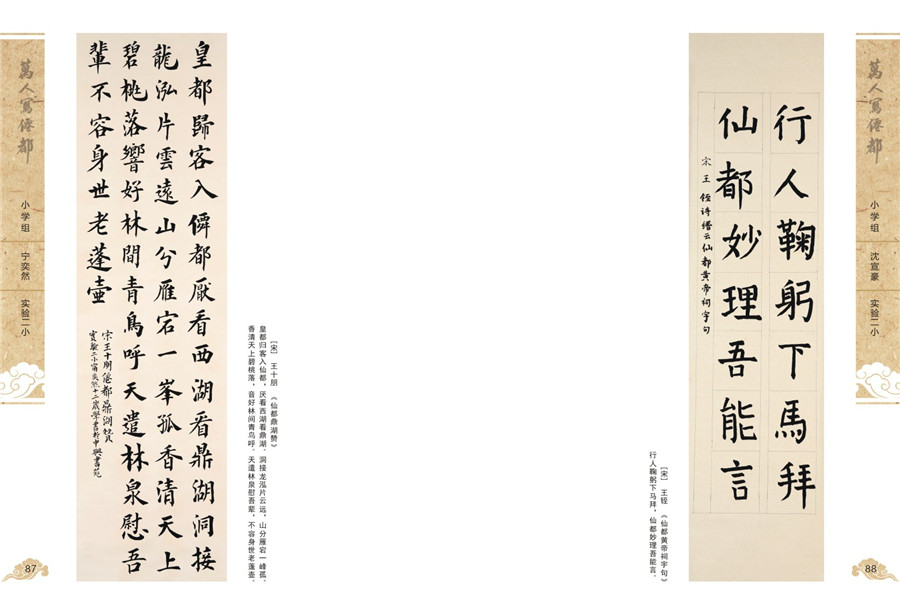 萬人寫僊都
小学组
宁奕然
实验二小
87
皇都歸客入僊都厭看西湖看鼎湖洞接
龍泓片雲遠山分雁宕一峯孤香清天上
碧桃落響好林間青鳥呼天遣林泉慰吾
輩不容身世老蓬壺
宋王十朋僊都鼎湖贊
實驗二小甯奕然十二歲學書於中興書苑
［宋］ 王十朋 《仙都鼎湖赞》
皇都归客入仙都，厌看西湖看鼎湖。洞接龙泓片云远，山分雁宕一峰孤。
香清天上碧桃落，音好林间青鸟呼。天遣林泉慰吾辈，不容身世老蓬壶。
行人鞠躬下馬拜
仙都妙理吾能言
宋王铚诗缙云仙都黄帝祠宇句
［宋］ 王铚 《仙都黄帝祠宇句》
行人鞠躬下马拜，仙都妙理吾能言。
萬人寫僊都
小学组
沈宣豪
实验二小
88